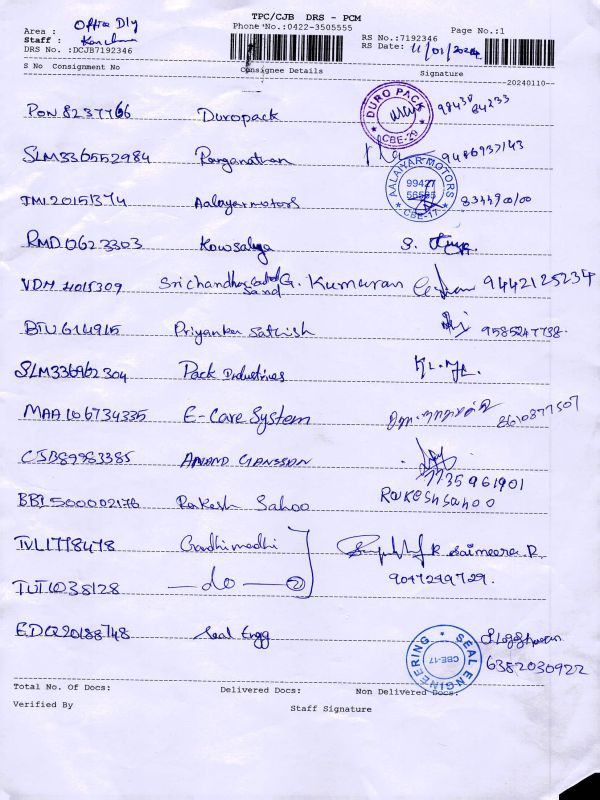 TPC/CJB DRS - PCM
Area : Office Dly Phone No.:0422-3505555 Page No.:1
Staff : RS No.:7192346
DRS No. :DCJB7192346 RS Date: 11/01/2024
S No Consignment No Consignee Details Signature
20240110
PON 8237766 Duropack DURO PACK CBE-29 98438 84233
SLM336552984 Ranganathan 9486937143
JMI 20151374 Aalayar motors AALAIYAR MOTORS 99427 56565 CBE-17 8344900100
RMD 0623303 Kowsalya S.
VDM 4015309 Srichandha G. Kumaran 9442125234
Sand
BTU 614915 Priyanka Sathish 9585247738.
SLM336962304 Pack Industries
MAA106734335 E-Care System 8610377507
CJB89983385 7735961901
BBI 500002176 Rakesh Sahoo Rakesh Sahoo
TVL1778478 Gandhimadhi R Saimeera.R
9047299729.
TUT1038128 — do — 2
EDQ20188748 Seal Engg SEAL ENGINEERING CBE-17
6382030922
Total No. Of Docs: Delivered Docs: Non Delivered Docs:
Verified By Staff Signature